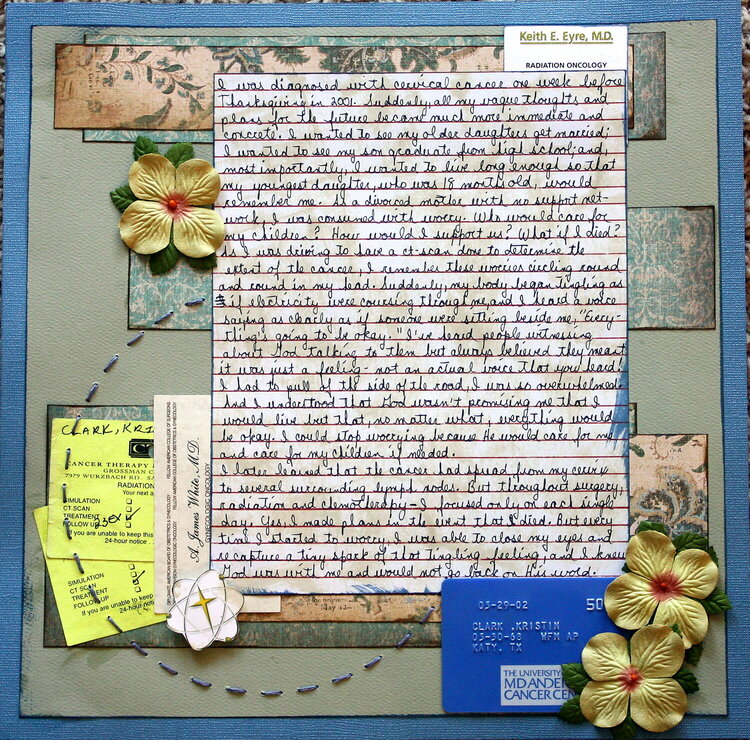 Keith E. Eyre, M.D.
RADIATION ONCOLOGY
I was diagnosed with cervical cancer one week before
Thanksgiving in 2001. Suddenly, all my vague thoughts and
plans for the future became much more immediate and
concrete. I wanted to see my older daughters get married;
I wanted to see my son graduate from high school; and,
most importantly, I wanted to live long enough so that
my youngest daughter, who was 18 months old, would
remember me. As a divorced mother with no support net-
work, I was consumed with worry. Who would care for
my children? How would I support us? What if I died?
As I was driving to have a ct-scan done to determine the
extent of the cancer, I remember these worries circling round
and round in my head. Suddenly, my body began tingling as
if electricity were coursing through me and I heard a voice
saying as clearly as if someone were sitting beside me, "Every-
thing's going to be okay." I've heard people witnessing
about God talking to them but always believed they meant
it was just a feeling - not an actual voice that you heard!
I had to pull off the side of the road, I was so overwhelmed.
And I understood that God wasn't promising me that I
would live but that, no matter what, everything would
be okay. I could stop worrying because He would care for me
and care for my children if needed.
I later learned that the cancer had spread from my cervix
to several surrounding lymph nodes. But throughout surgery,
radiation and chemotherapy - I focused only on each single
day. Yes, I made plans in the event that I died. But every
time I started to worry, I was able to close my eyes and
recapture a tiny spark of that tingling feeling and I knew
God was with me and would not go back on His word.
CLARK, KRI
CANCER THERAPY
GROSSMAN C
7979 WURZBACH RD. SA
RADIATION
Your next a
SIMULATION
CT SCAN
TREATMENT
FOLLOW UP
If you are unable to keep this
24-hour notice
SIMULATION
CT SCAN
TREATMENT
FOLLOW UP
If you are unable to keep
24-hour notice
A. James White, M.D.
GYNECOLOGIC ONCOLOGY
FELLOW AMERICAN COLLEGE OF SURGEONS
FELLOW AMERICAN COLLEGE OF OBSTETRICS & GYNECOLOGY
05-29-02 50
CLARK ,KRISTIN
05-30-68 WFM AP
KATY, TX
THE UNIVERSITY
MD ANDER
CANCER CEN